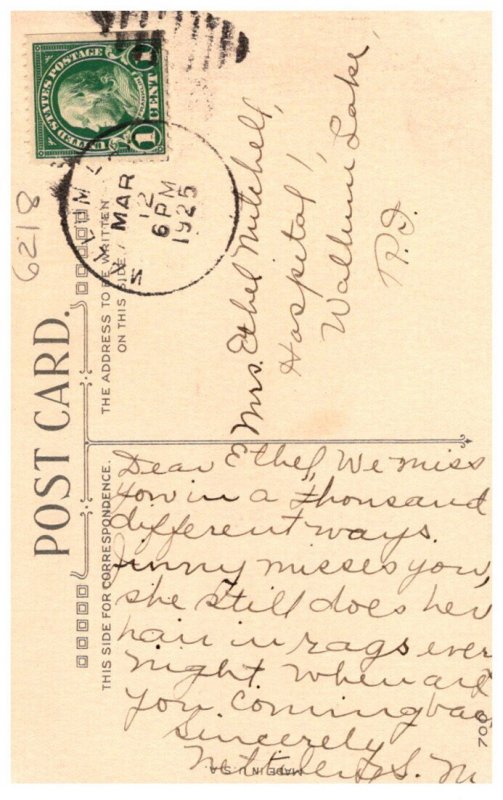 UNITED STATES POSTAGE
1 CENT 1
MAR
12
6 PM
1925
6218
POST CARD.
THE ADDRESS TO BE WRITTEN
ON THIS SIDE
THIS SIDE FOR CORRESPONDENCE.
Mrs. Ethel Mitchell,
Hospital,
Wallum Lake,
R.I.
Dear Ethel, We miss
you in a thousand
different ways.
Jinny misses you,
she still does her
hair in rags ever
night. When are
you coming bac
Sincerely
S. M
700
MADE IN U.S.A.